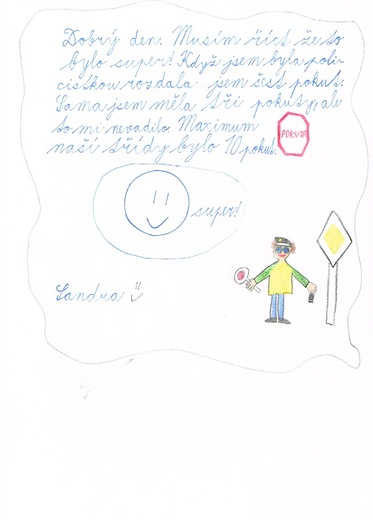 Dobrý den. Musím říct že to
bylo super! Když jsem byla poli-
cistkou rozdala jsem šest pokut.
Sama jsem měla tři pokuty, ale
to mi nevadilo Maximum
naší třídy bylo 10 pokut.
POKUTA
super!
Sandra